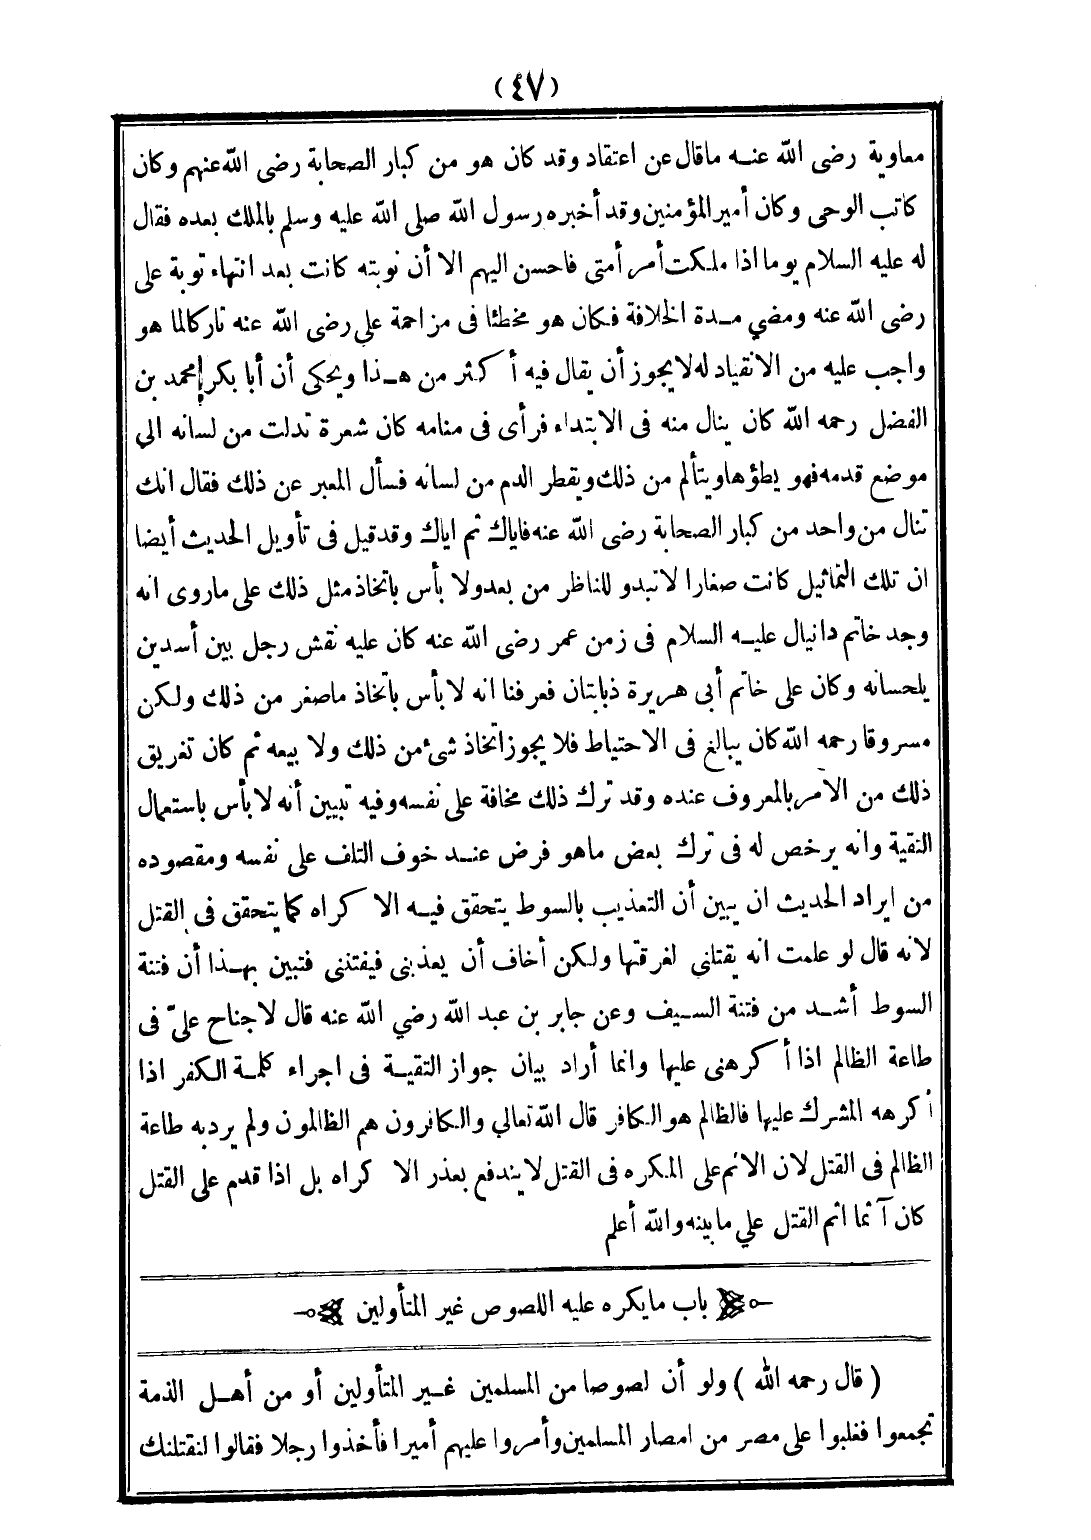 (٤٧)
معاوية رضى الله عنه ماقال عن اعتقاد وقد كان هو من كبار الصحابة رضى الله عنهم وكان
كاتب الوحى وكان أمير المؤمنين وقد أخبره رسول الله صلى الله عليه وسلم بالملك بعده فقال
له عليه السلام يوما اذا ملكت أمر أمتى فاحسن اليهم الا أن نوبته كانت بعد انتهاء نوبة على
رضى الله عنه ومضي مدة الخلافة فكان هو مخطئا فى مزاحمة علي رضى الله عنه تاركا لما هو
واجب عليه من الانقياد له لا يجوز أن يقال فيه أكثر من هذا ويحكى أن أبا بكر محمد بن
الفضل رحمه الله كان ينال منه فى الابتداء فرأى فى منامه كان شعرة تدلت من لسانه الي
موضع قدمه فهو يطؤها ويتألم من ذلك ويقطر الدم من لسانه فسأل المعبر عن ذلك فقال انك
تنال من واحد من كبار الصحابة رضى الله عنه فاياك ثم اياك وقد قيل فى تأويل الحديث أيضا
ان تلك التماثيل كانت صغارا لا تبدو للناظر من بعد ولا بأس باتخاذ مثل ذلك على ماروى انه
وجد خاتم دانيال عليه السلام فى زمن عمر رضى الله عنه كان عليه نقش رجل بين أسدين
يلحسانه وكان على خاتم أبى هريرة ذبابتان فعرفنا انه لا بأس باتخاذ ماصغر من ذلك ولكن
مسروقا رحمه الله كان يبالغ فى الاحتياط فلا يجوز اتخاذ شئ من ذلك ولا بيعه ثم كان تغريق
ذلك من الأمر بالمعروف عنده وقد ترك ذلك مخافة على نفسه وفيه تبيين أنه لا بأس باستعمال
التقية وانه يرخص له فى ترك بعض ماهو فرض عند خوف التلف على نفسه ومقصوده
من ايراد الحديث ان يبين أن التعذيب بالسوط يتحقق فيه الاكراه كما يتحقق فى القتل
لانه قال لو علمت انه يقتلني لغرقتها ولكن أخاف أن يعذبنى فيفتننى فتبين بهذا أن فتنة
السوط أشد من فتنة السيف وعن جابر بن عبد الله رضي الله عنه قال لا جناح علىّ فى
طاعة الظالم اذا أكرهنى عليها وانما أراد بيان جواز التقية فى اجراء كلمة الكفر اذا
أكرهه المشرك عليها فالظالم هو الكافر قال الله تعالي والكافرون هم الظالمون ولم يرد به طاعة
الظالم فى القتل لان الاثم على المكره فى القتل لا يندفع بعذر الاكراه بل اذا قدم على القتل
كان آثما اثم القتل علي ما بينه والله أعلم
باب ما يكره عليه اللصوص غير المتأولين
(قال رحمه الله) ولو أن لصوصا من المسلمين غير المتأولين أو من أهل الذمة
تجمعوا فغلبوا على مصر من امصار المسلمين وأمروا عليهم أميرا فأخذوا رجلا فقالوا لنقتلنك